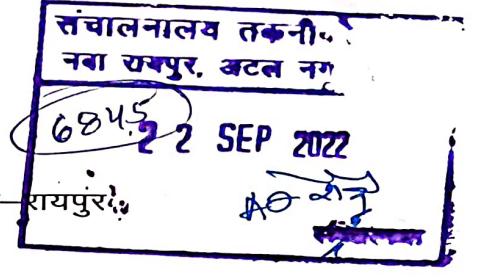 संचालनालय तकनी
नवा रायपुर, अटल नग
6845
22 SEP 2022
रायपुर
AO